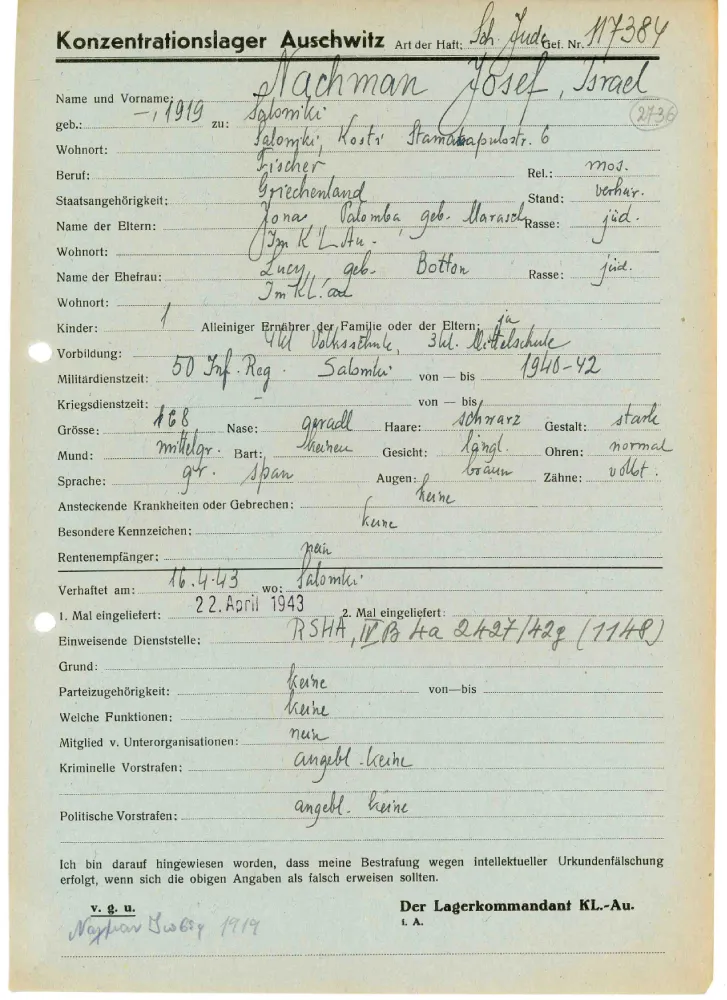 Konzentrationslager Auschwitz Art der Haft: Sch. Jude Gef. Nr. 117384
Name und Vorname: Nachman Josef, Israel
geb.: –, 1919 zu: Saloniki 2736
Wohnort: Saloniki, Kosti 6
Beruf: Fischer Rel.: mos.
Staatsangehörigkeit: Griechenland Stand: verheir.
Name der Eltern: Jona, Palomba, geb. Rasse: jüd.
Wohnort: Im K'L. Au.
Name der Ehefrau: Lucy, geb. Botton Rasse: jüd.
Wohnort: Im KL.
Kinder: 1 Alleiniger Ernährer der Familie oder der Eltern: ja
Vorbildung: 4 kl Volksschule, 3 kl. Mittelschule
Militärdienstzeit: 50 Inf. Reg. Saloniki von — bis 1940-42
Kriegsdienstzeit: – von — bis
Grösse: 168 Nase: geradl Haare: schwarz Gestalt: stark
Mund: mittelgr. Bart: keinen Gesicht: längl. Ohren: normal
Sprache: gr. span Augen: braun Zähne: vollst.
Ansteckende Krankheiten oder Gebrechen: keine
Besondere Kennzeichen: keine
Rentenempfänger: nein
Verhaftet am: 16.4.43 wo: Saloniki
1. Mal eingeliefert: 22. April 1943 2. Mal eingeliefert:
Einweisende Dienststelle: RSHA, IV B 4a 2427/42g (1148)
Grund:
Parteizugehörigkeit: keine von—bis
Welche Funktionen: keine
Mitglied v. Unterorganisationen: nein
Kriminelle Vorstrafen: angebl. keine
Politische Vorstrafen: angebl. keine
Ich bin darauf hingewiesen worden, dass meine Bestrafung wegen intellektueller Urkundenfälschung
erfolgt, wenn sich die obigen Angaben als falsch erweisen sollten.
v. g. u. Der Lagerkommandant KL.-Au.
i. A.
1919